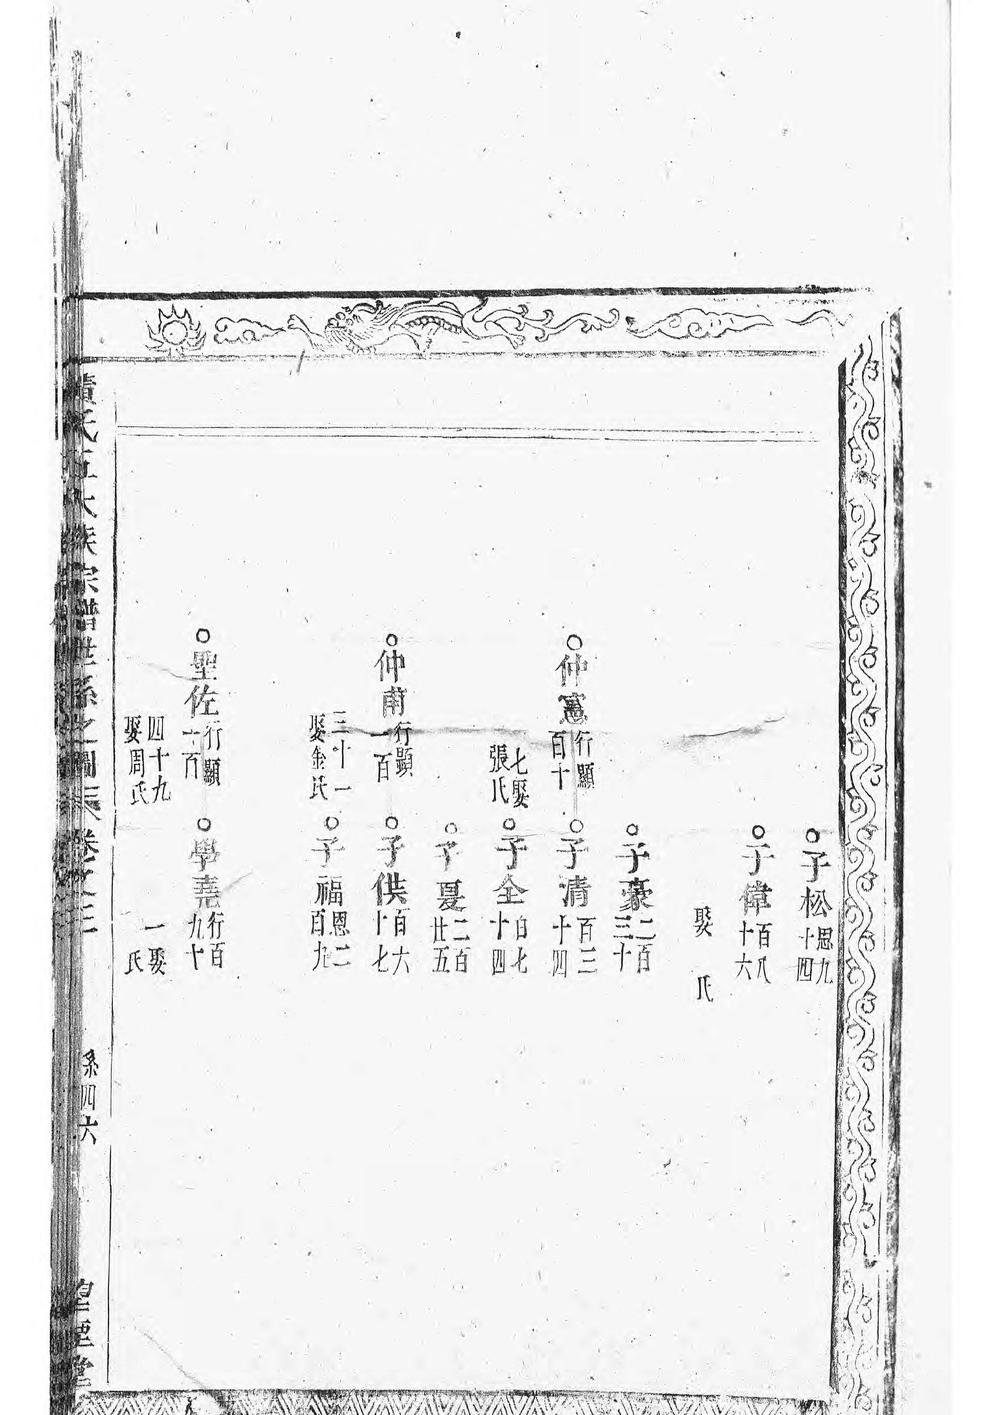 子松
恩九
十四
子偉
百八
十六
娶 氏
子豪
二百
三十
仲憲
行顯
百十
七娶
張氏
子清
百三
十四
子全
百七
十四
子夏
二百
廿五
仲甫
行顯
一百
三十一
娶金氏
子供
百六
十七
子福
恩二
百九
聖佐
行顯
一百
四十九
娶周氏
學堯
行百
九十
一娶
氏
黄氏五大族宗譜世系之圖 卷之三
系四六
堂